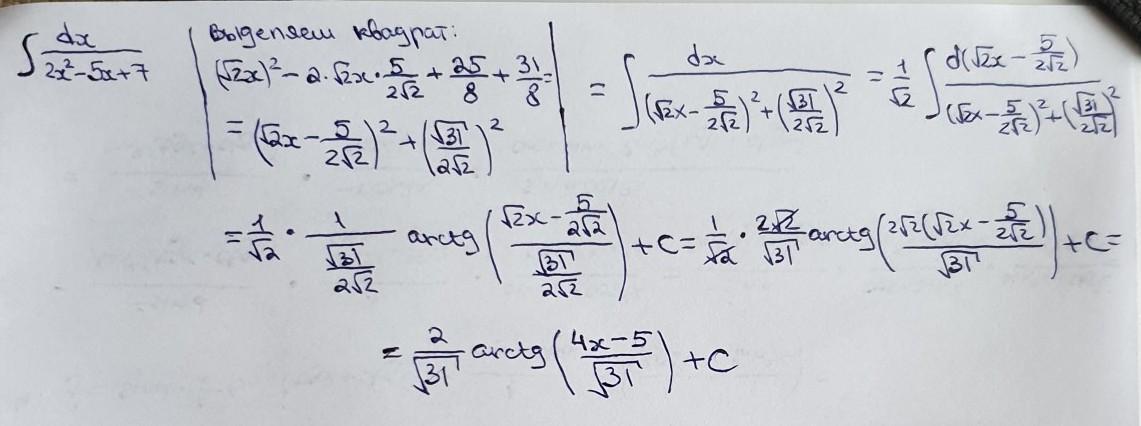 ∫ dx/(2x²-5x+7) | Выделяем квадрат:
(√2x)² - 2·√2x·5/(2√2) + 25/8 + 31/8 =
= (√2x - 5/(2√2))² + (√31/(2√2))² | = ∫ dx/((√2x - 5/(2√2))² + (√31/(2√2))²) = 1/√2 ∫ d(√2x - 5/(2√2))/((√2x - 5/(2√2))² + (√31/(2√2))²)
= 1/√2 · 1/(√31/(2√2)) arctg((√2x - 5/(2√2))/(√31/(2√2))) + C = 1/√2 · 2√2/√31 arctg(2√2(√2x - 5/(2√2))/√31) + C =
= 2/√31 arctg((4x-5)/√31) + C